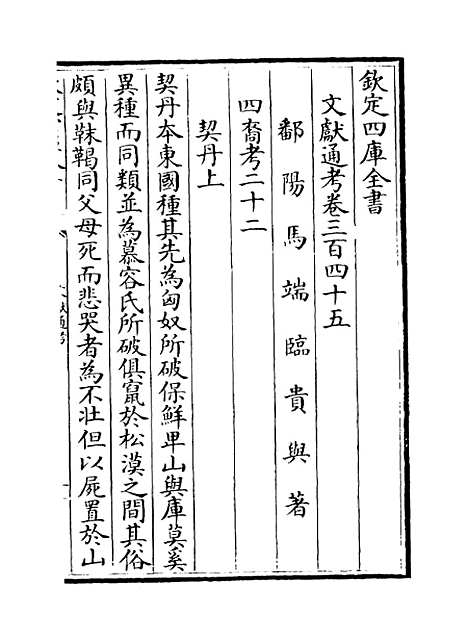 欽定四庫全書
文獻通考卷三百四十五
鄱陽馬端臨貴與著
四裔考二十二
契丹上
契丹本東國種其先為匈奴所破保鮮卑山與庫莫奚
異種而同類並為慕容氏所破俱竄於松漠之間其俗
頗與靺鞨同父母死而悲哭者為不壯但以屍置於山